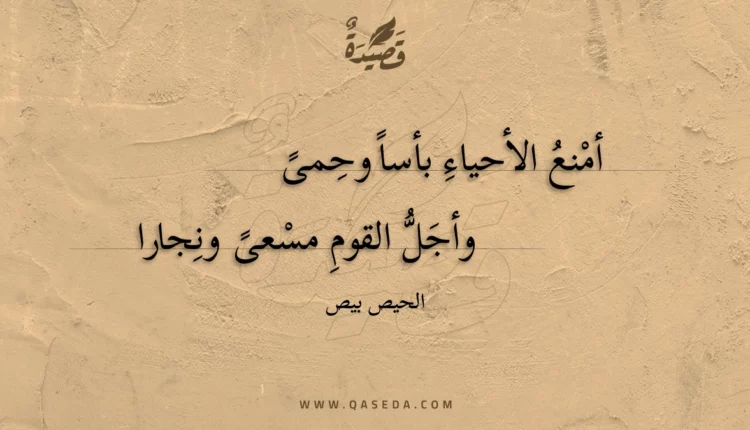 قَصِيْدَةٌ
أمْنعُ الأحياءِ بأساً وحِمىً
وأجَلُّ القومِ مسْعىً ونِجارا
الحيص بيص
WWW.QASEDA.COM